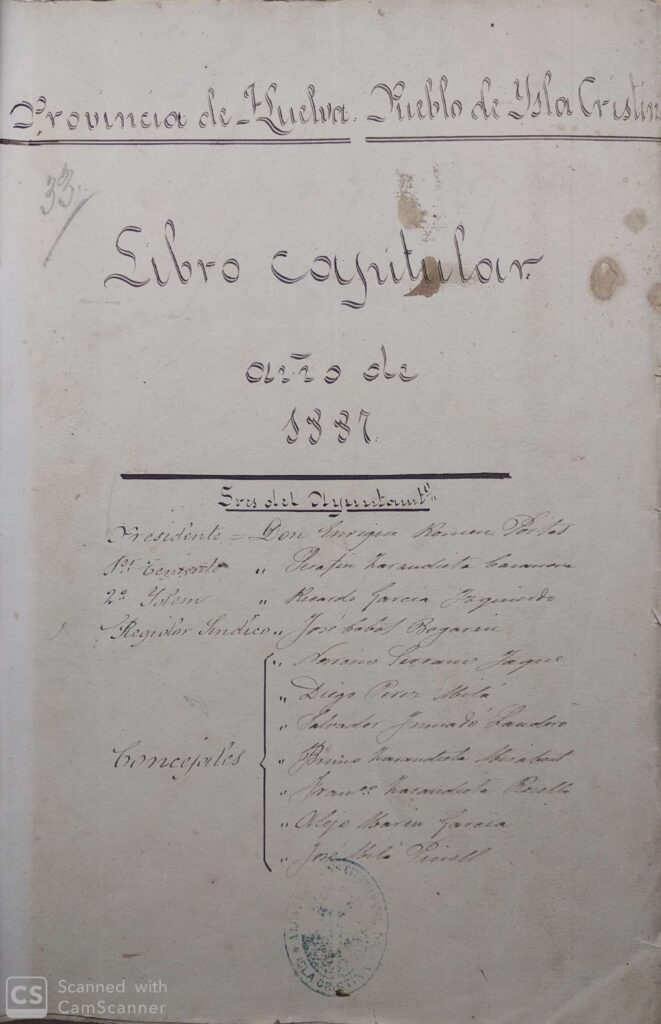 Provincia de Huelva. Pueblo de Isla Cristin
33.
Libro capitular
año de
1887.
Sres del Ayuntamto
Presidente = Don Enrique Romeu Portas
1er Teniente " Serafin Zarandieta Casanova
2o Idem " Ricardo Garcia Izquierdo
Regidor Sindico " José Cabot Bogarin
" Serrano
" Diego Perez Milá
" Salvador
Concejales
" Zarandieta Mirabent
" Franco Zarandieta Roselló
" Alejo Marin Garcia
" José Milá
ISLA CRISTINA
CS Scanned with
CamScanner